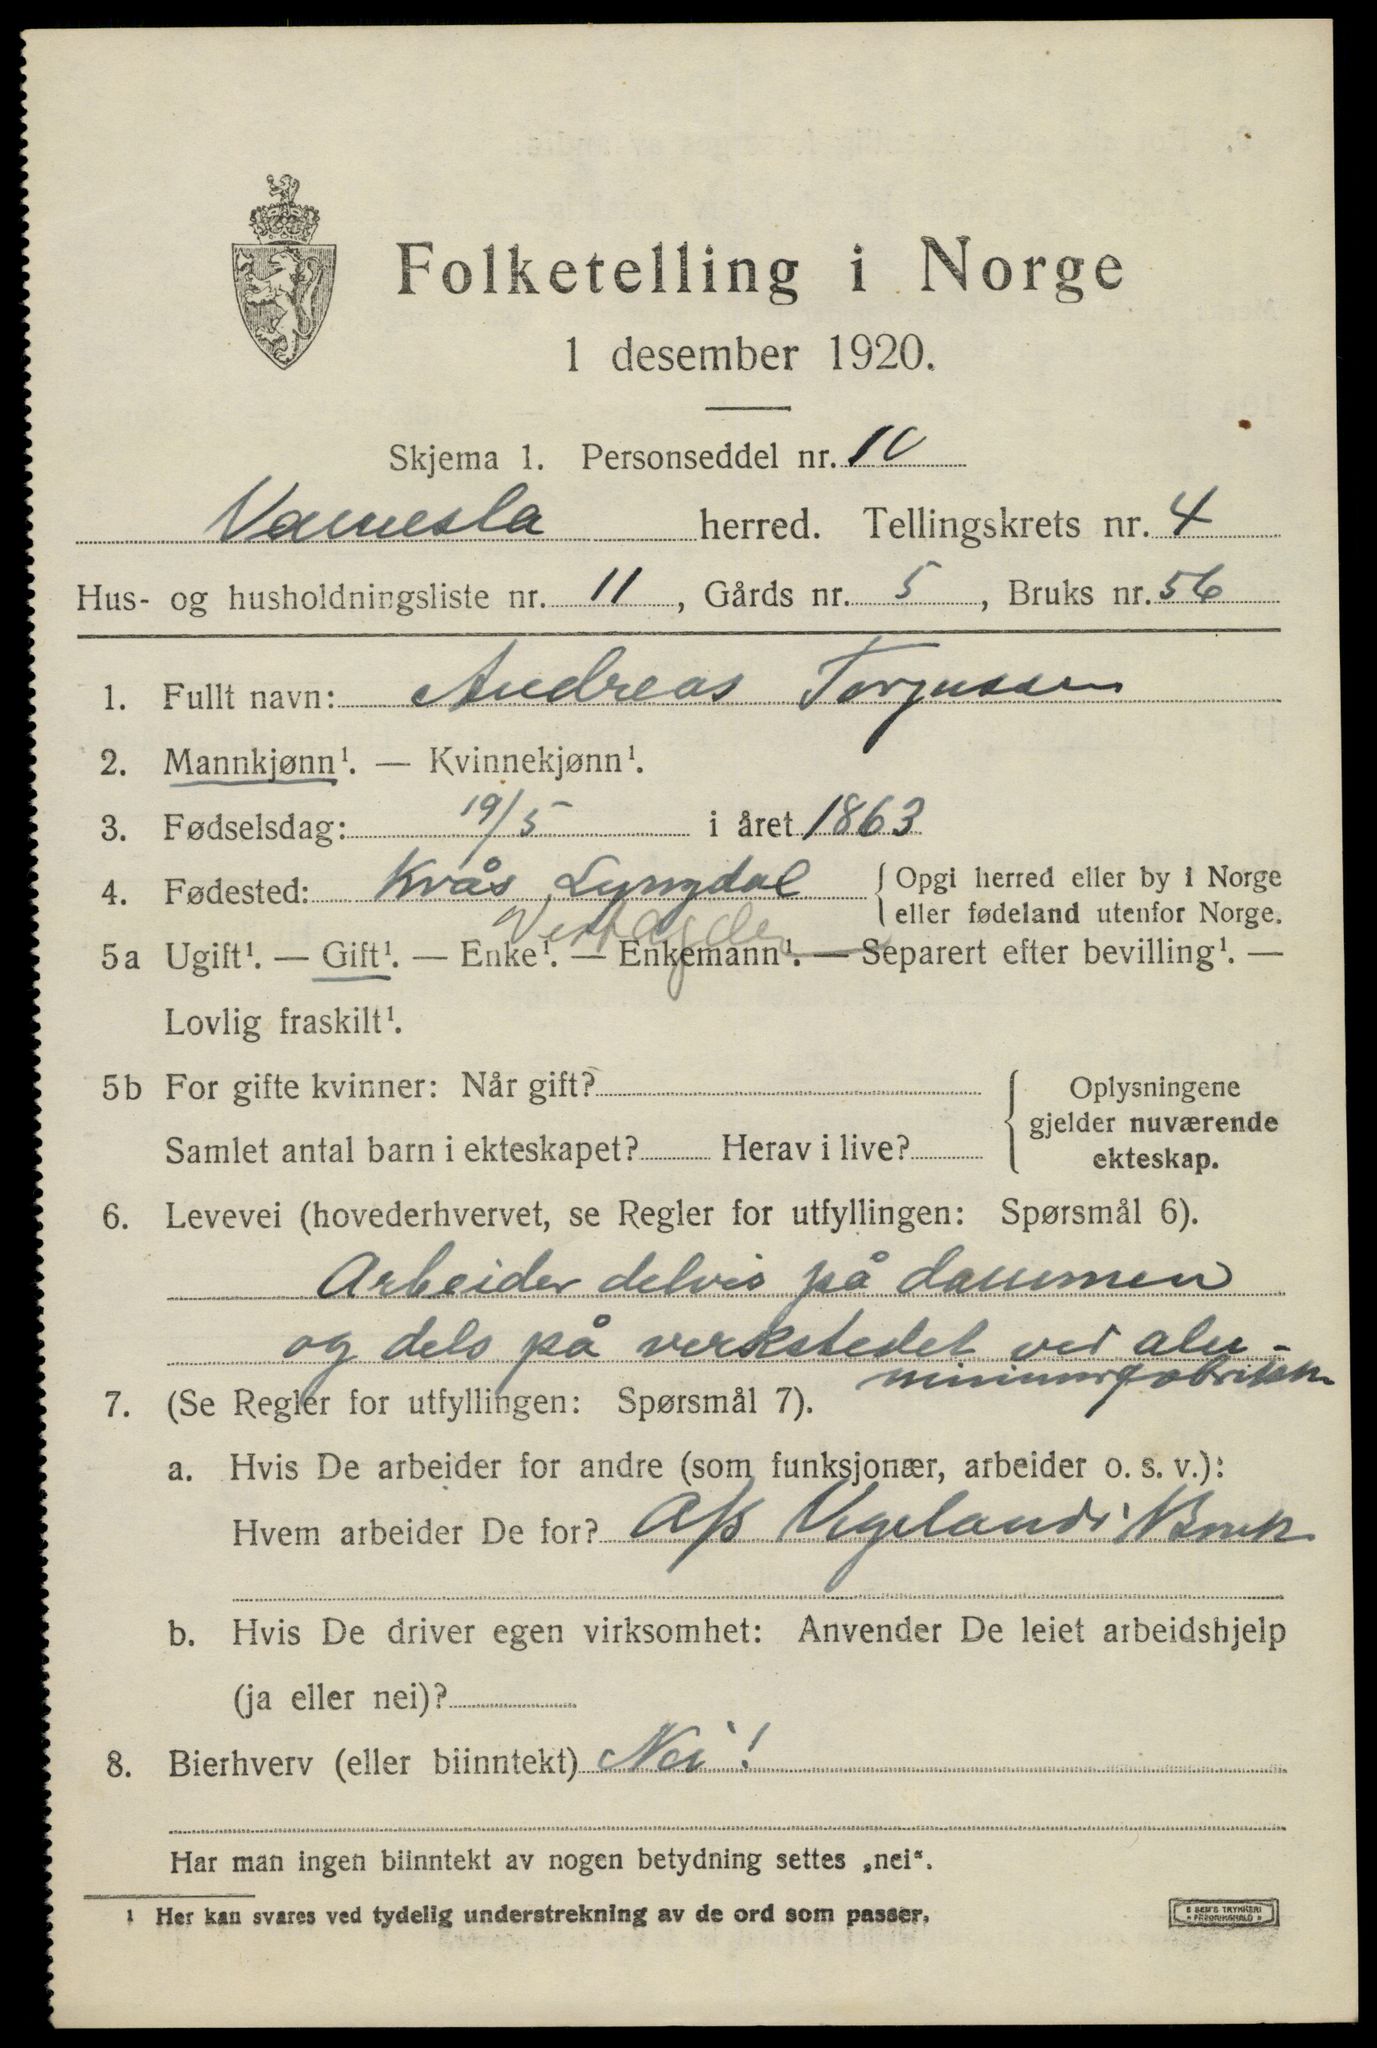 Folketelling i Norge
1 desember 1920.
Skjema 1. Personseddel nr. 10
Vennesla herred. Tellingskrets nr. 4
Hus- og husholdningsliste nr. 11, Gårds nr. 5, Bruks nr. 56
1. Fullt navn: Andreas Torgussen
2. Mannkjønn¹. — Kvinnekjønn¹.
3. Fødselsdag: 19/5 i året 1863
4. Fødested: Kvås Lyngdal { Opgi herred eller by i Norge
eller fødeland utenfor Norge.
Vestagder
5a Ugift¹. — Gift¹. — Enke¹. — Enkemann¹. — Separert efter bevilling¹. —
Lovlig fraskilt¹.
5b For gifte kvinner: Når gift?
Samlet antal barn i ekteskapet? Herav i live?
{ Oplysningene
gjelder nuværende
ekteskap.
6. Levevei (hovederhvervet, se Regler for utfyllingen: Spørsmål 6).
Arbeider delvis på dammen
og dels på verkstedet ved alu-
miniumfabrikken
7. (Se Regler for utfyllingen: Spørsmål 7).
a. Hvis De arbeider for andre (som funksjonær, arbeider o. s. v.):
Hvem arbeider De for? A/S Vigelands Bruk
b. Hvis De driver egen virksomhet: Anvender De leiet arbeidshjelp
(ja eller nei)?
8. Bierhverv (eller biinntekt) Nei!
Har man ingen biinntekt av nogen betydning settes „nei“.
1 Her kan svares ved tydelig understrekning av de ord som passer.
E SEM'S TRYKKERI
FREDRIKSHALD